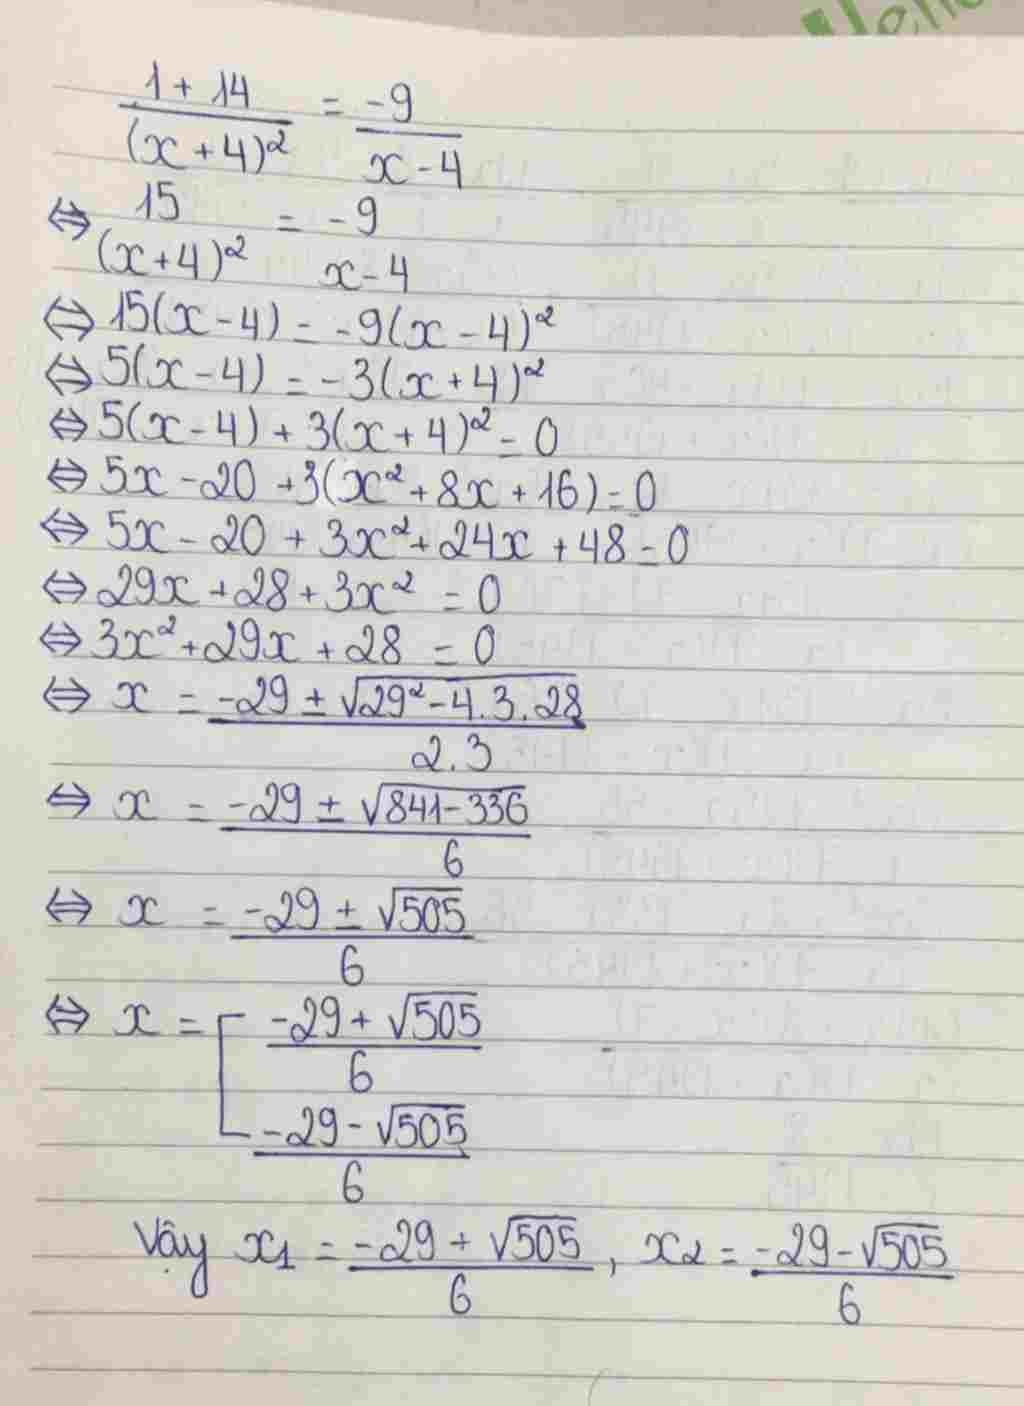 1 + 14 / (x + 4)² = -9 / x - 4
⇔ 15 / (x+4)² = -9 / x-4
⇔ 15(x-4) = -9(x-4)²
⇔ 5(x-4) = -3(x+4)²
⇔ 5(x-4) + 3(x+4)² = 0
⇔ 5x - 20 + 3(x² + 8x + 16) = 0
⇔ 5x - 20 + 3x² + 24x + 48 = 0
⇔ 29x + 28 + 3x² = 0
⇔ 3x² + 29x + 28 = 0
⇔ x = -29 ± √29² - 4.3.28 / 2.3
⇔ x = -29 ± √841-336 / 6
⇔ x = -29 ± √505 / 6
⇔ x = [ -29 + √505 / 6
-29 - √505 / 6
Vậy x1 = -29 + √505 / 6 , x2 = -29 - √505 / 6